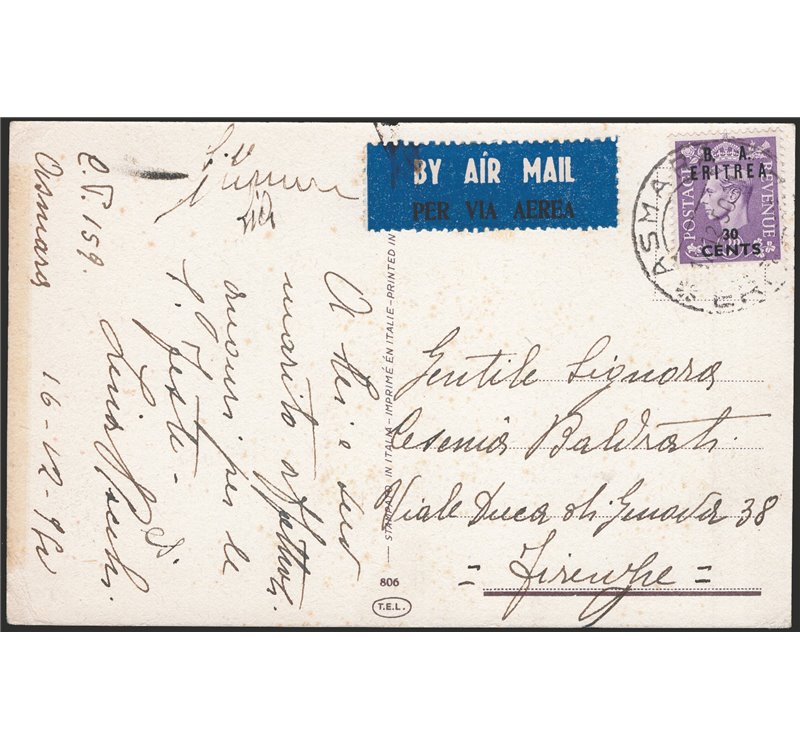 BY AIR MAIL
PER VIA AEREA
B. A.
ERITREA
POSTAGE
REVENUE
30
CENTS
ASMARA
Gentile Signora
Cesenia Baldrati.
Viale Duca di Genova 38
= Firenze =
STAMPATO IN ITALIA - IMPRIMÉ EN ITALIE - PRINTED IN
806
T.E.L.
A Lei e suo
marito affettuosi
auguri per le
S. Feste -
C.P. 159.
Asmara 16-12-950